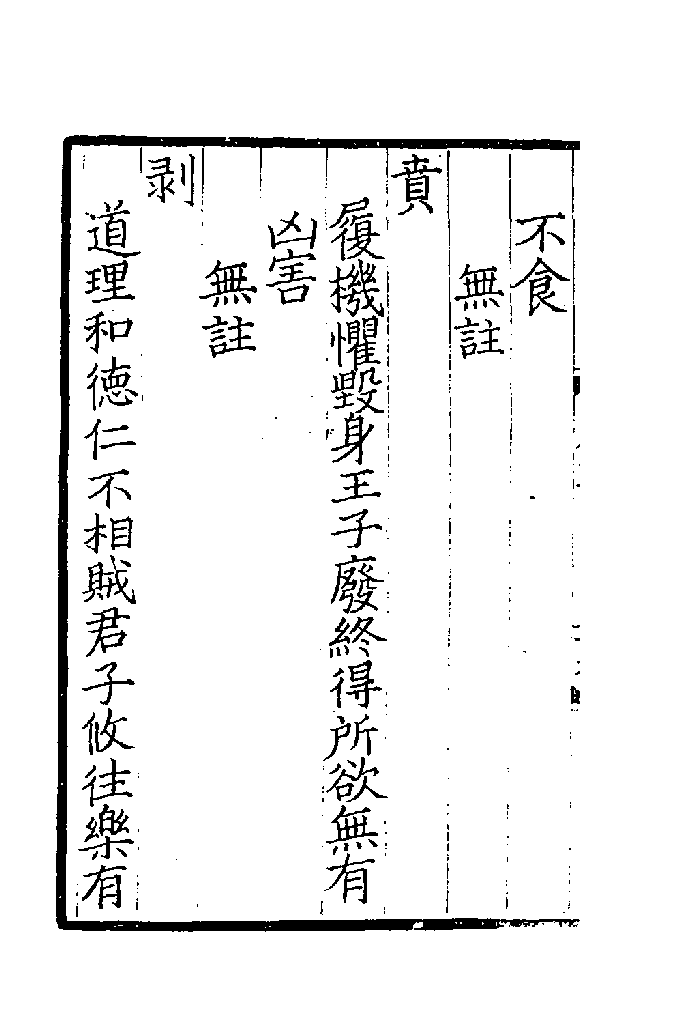 不食
無註
賁
履機懼毀身王子廢終得所欲無有
凶害
無註
剥
道理和德仁不相賊君子攸往樂有